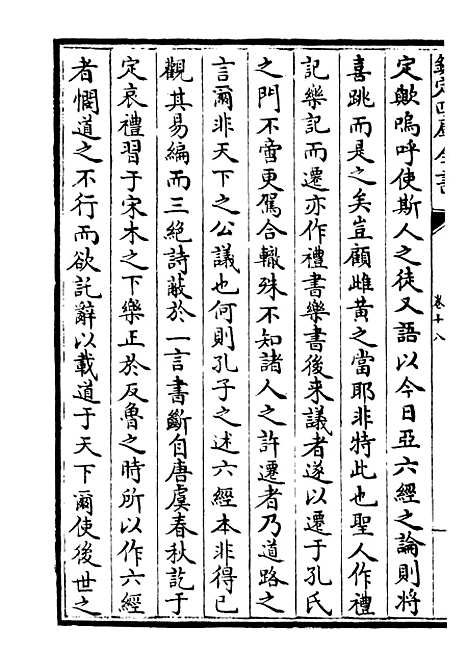 欽定四庫全書
卷十八
定歟嗚呼使斯人之徒又語以今日亞六經之論則將
喜跳而是之矣豈顧雌黃之當耶非特此也聖人作禮
記樂記而遷亦作禮書樂書後来議者遂以遷于孔氏
之門不啻更駕合轍殊不知諸人之許遷者乃道路之
言爾非天下之公議也何則孔子之述六經本非得已
觀其易編而三絶詩蔽於一言書斷自唐虞春秋訖于
定哀禮習于宋木之下樂正於反魯之時所以作六經
者憫道之不行而欲託辭以載道于天下爾使後世之